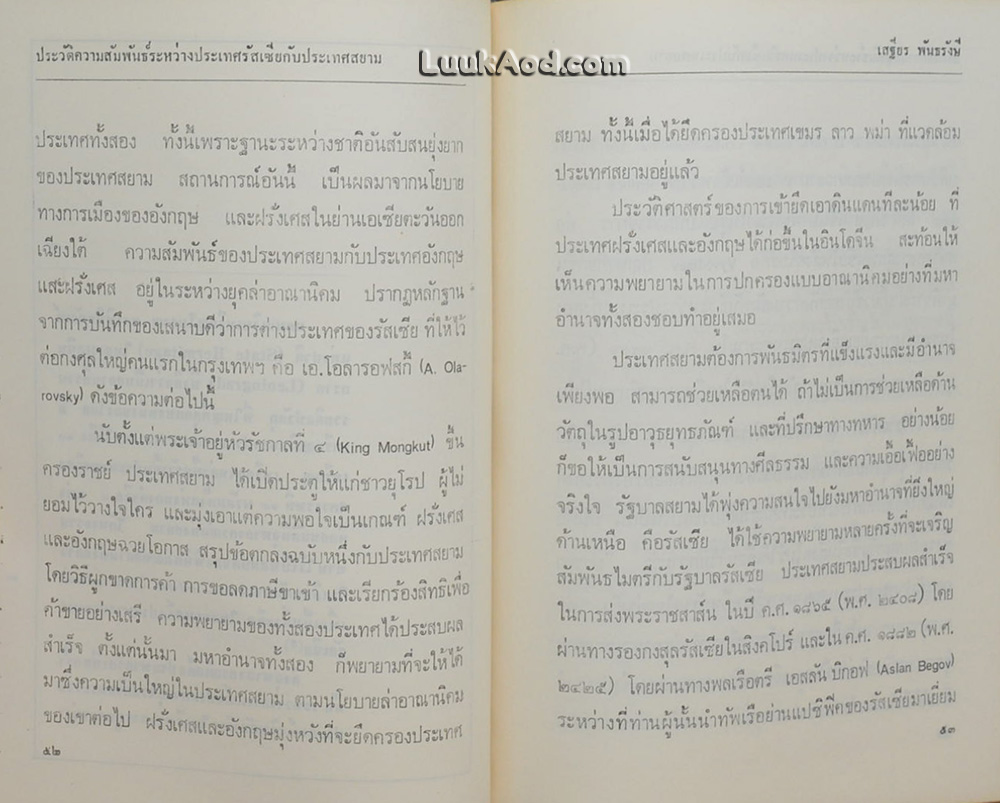 ประวัติความสัมพันธ์ระหว่างประเทศรัสเซียกับประเทศสยาม
ประเทศทั้งสอง ทั้งนี้เพราะฐานะระหว่างชาติอันสับสนยุ่งยาก
ของประเทศสยาม สถานการณ์อันนี้ เป็นผลมาจากนโยบาย
ทางการเมืองของอังกฤษ และฝรั่งเศสในย่านเอเซียตะวันออก
เฉียงใต้ ความสัมพันธ์ของประเทศสยามกับประเทศอังกฤษ
และฝรั่งเศส อยู่ในระหว่างยุคล่าอาณานิคม ปรากฏหลักฐาน
จากการบันทึกของเสนาบดีว่าการต่างประเทศของรัสเซีย ที่ให้ไว้
ต่อกงศุลใหญ่คนแรกในกรุงเทพฯ คือ เอ.โอลารอฟสกี้ (A. Ola-
rovsky) ดังข้อความต่อไปนี้
นับตั้งแต่พระเจ้าอยู่หัวรัชกาลที่ ๔ (King Mongkut) ขึ้น
ครองราชย์ ประเทศสยาม ได้เปิดประตูให้แก่ชาวยุโรป ผู้ไม่
ยอมไว้วางใจใคร และมุ่งเอาแต่ความพอใจเป็นเกณฑ์ ฝรั่งเศส
และอังกฤษฉวยโอกาส สรุปข้อตกลงฉบับหนึ่งกับประเทศสยาม
โดยวิธีผูกขาดการค้า การขอลดภาษีขาเข้า และเรียกร้องสิทธิเพื่อ
ค้าขายอย่างเสรี ความพยายามของทั้งสองประเทศได้ประสบผล
สำเร็จ ตั้งแต่นั้นมา มหาอำนาจทั้งสอง ก็พยายามที่จะให้ได้
มาซึ่งความเป็นใหญ่ในประเทศสยาม ตามนโยบายล่าอาณานิคม
ของเขาต่อไป ฝรั่งเศสและอังกฤษมุ่งหวังที่จะยึดครองประเทศ
๕๒
LuukAod.com
เสฐียร พันธรังษี
สยาม ทั้งนี้เมื่อได้ยึดครองประเทศเขมร ลาว พม่า ที่แวดล้อม
ประเทศสยามอยู่แล้ว
ประวัติศาสตร์ของการเข้ายึดเอาดินแดนทีละน้อย ที่
ประเทศฝรั่งเศสและอังกฤษได้ก่อขึ้นในอินโดจีน สะท้อนให้
เห็นความพยายามในการปกครองแบบอาณานิคมอย่างที่มหา
อำนาจทั้งสองชอบทำอยู่เสมอ
ประเทศสยามต้องการพันธมิตรที่แข็งแรงและมีอำนาจ
เพียงพอ สามารถช่วยเหลือตนได้ ถ้าไม่เป็นการช่วยเหลือด้าน
วัตถุในรูปอาวุธยุทธภัณฑ์ และที่ปรึกษาทางทหาร อย่างน้อย
ก็ขอให้เป็นการสนับสนุนทางศีลธรรม และความเอื้อเฟื้ออย่าง
จริงใจ รัฐบาลสยามได้พุ่งความสนใจไปยังมหาอำนาจที่ยิ่งใหญ่
ด้านเหนือ คือรัสเซีย ได้ใช้ความพยายามหลายครั้งที่จะเจริญ
สัมพันธไมตรีกับรัฐบาลรัสเซีย ประเทศสยามประสบผลสำเร็จ
ในการส่งพระราชสาส์น ในปี ค.ศ. ๑๘๖๕ (พ.ศ. ๒๔๐๘) โดย
ผ่านทางรองกงสุลรัสเซียในสิงคโปร์ และใน ค.ศ. ๑๘๘๒ (พ.ศ.
๒๔๒๕) โดยผ่านทางพลเรือตรี เอสลัน บิกอฟ (Aslan Begov)
ระหว่างที่ท่านผู้นั้นนำทัพเรือย่านแปซิฟิคของรัสเซียมาเยี่ยม
๕๓